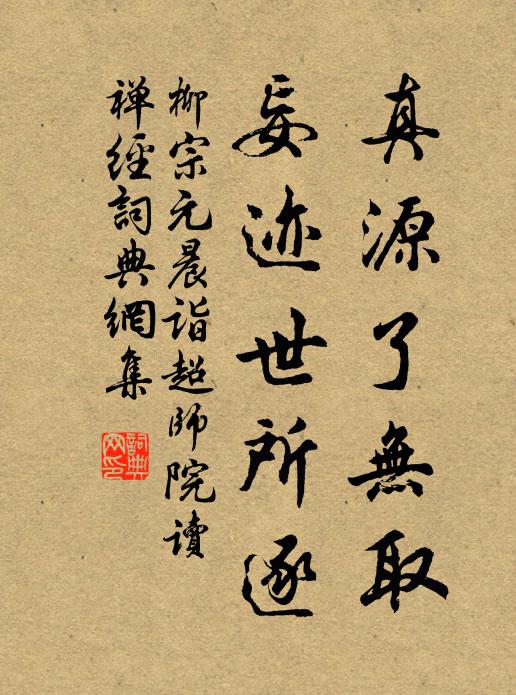 真源了無取
妄迹世所逐
柳宗元晨詣超師院讀
禅經詞典網集
詞典
网印